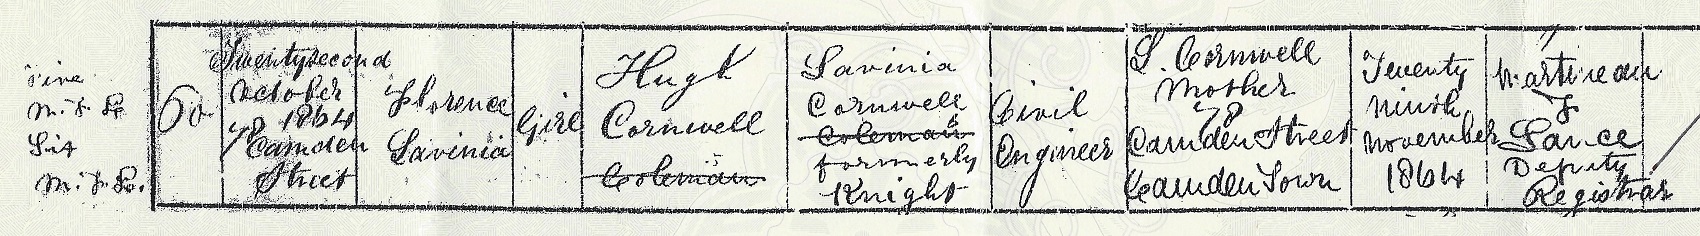 Five
M. F. L.
Six
M. F. L.
60
Twentysecond
October
1864
78
Camden
Street
Florence
Lavinia
Girl
Hugh
Cornwell
Coleman
Lavinia
Cornwell
Coleman
formerly
Knight
Civil
Engineer
L. Cornwell
Mother
78
Camden Street
Camden Town
Twenty
Ninth
November
1864
Martineau
F
Lance
Deputy
Registrar